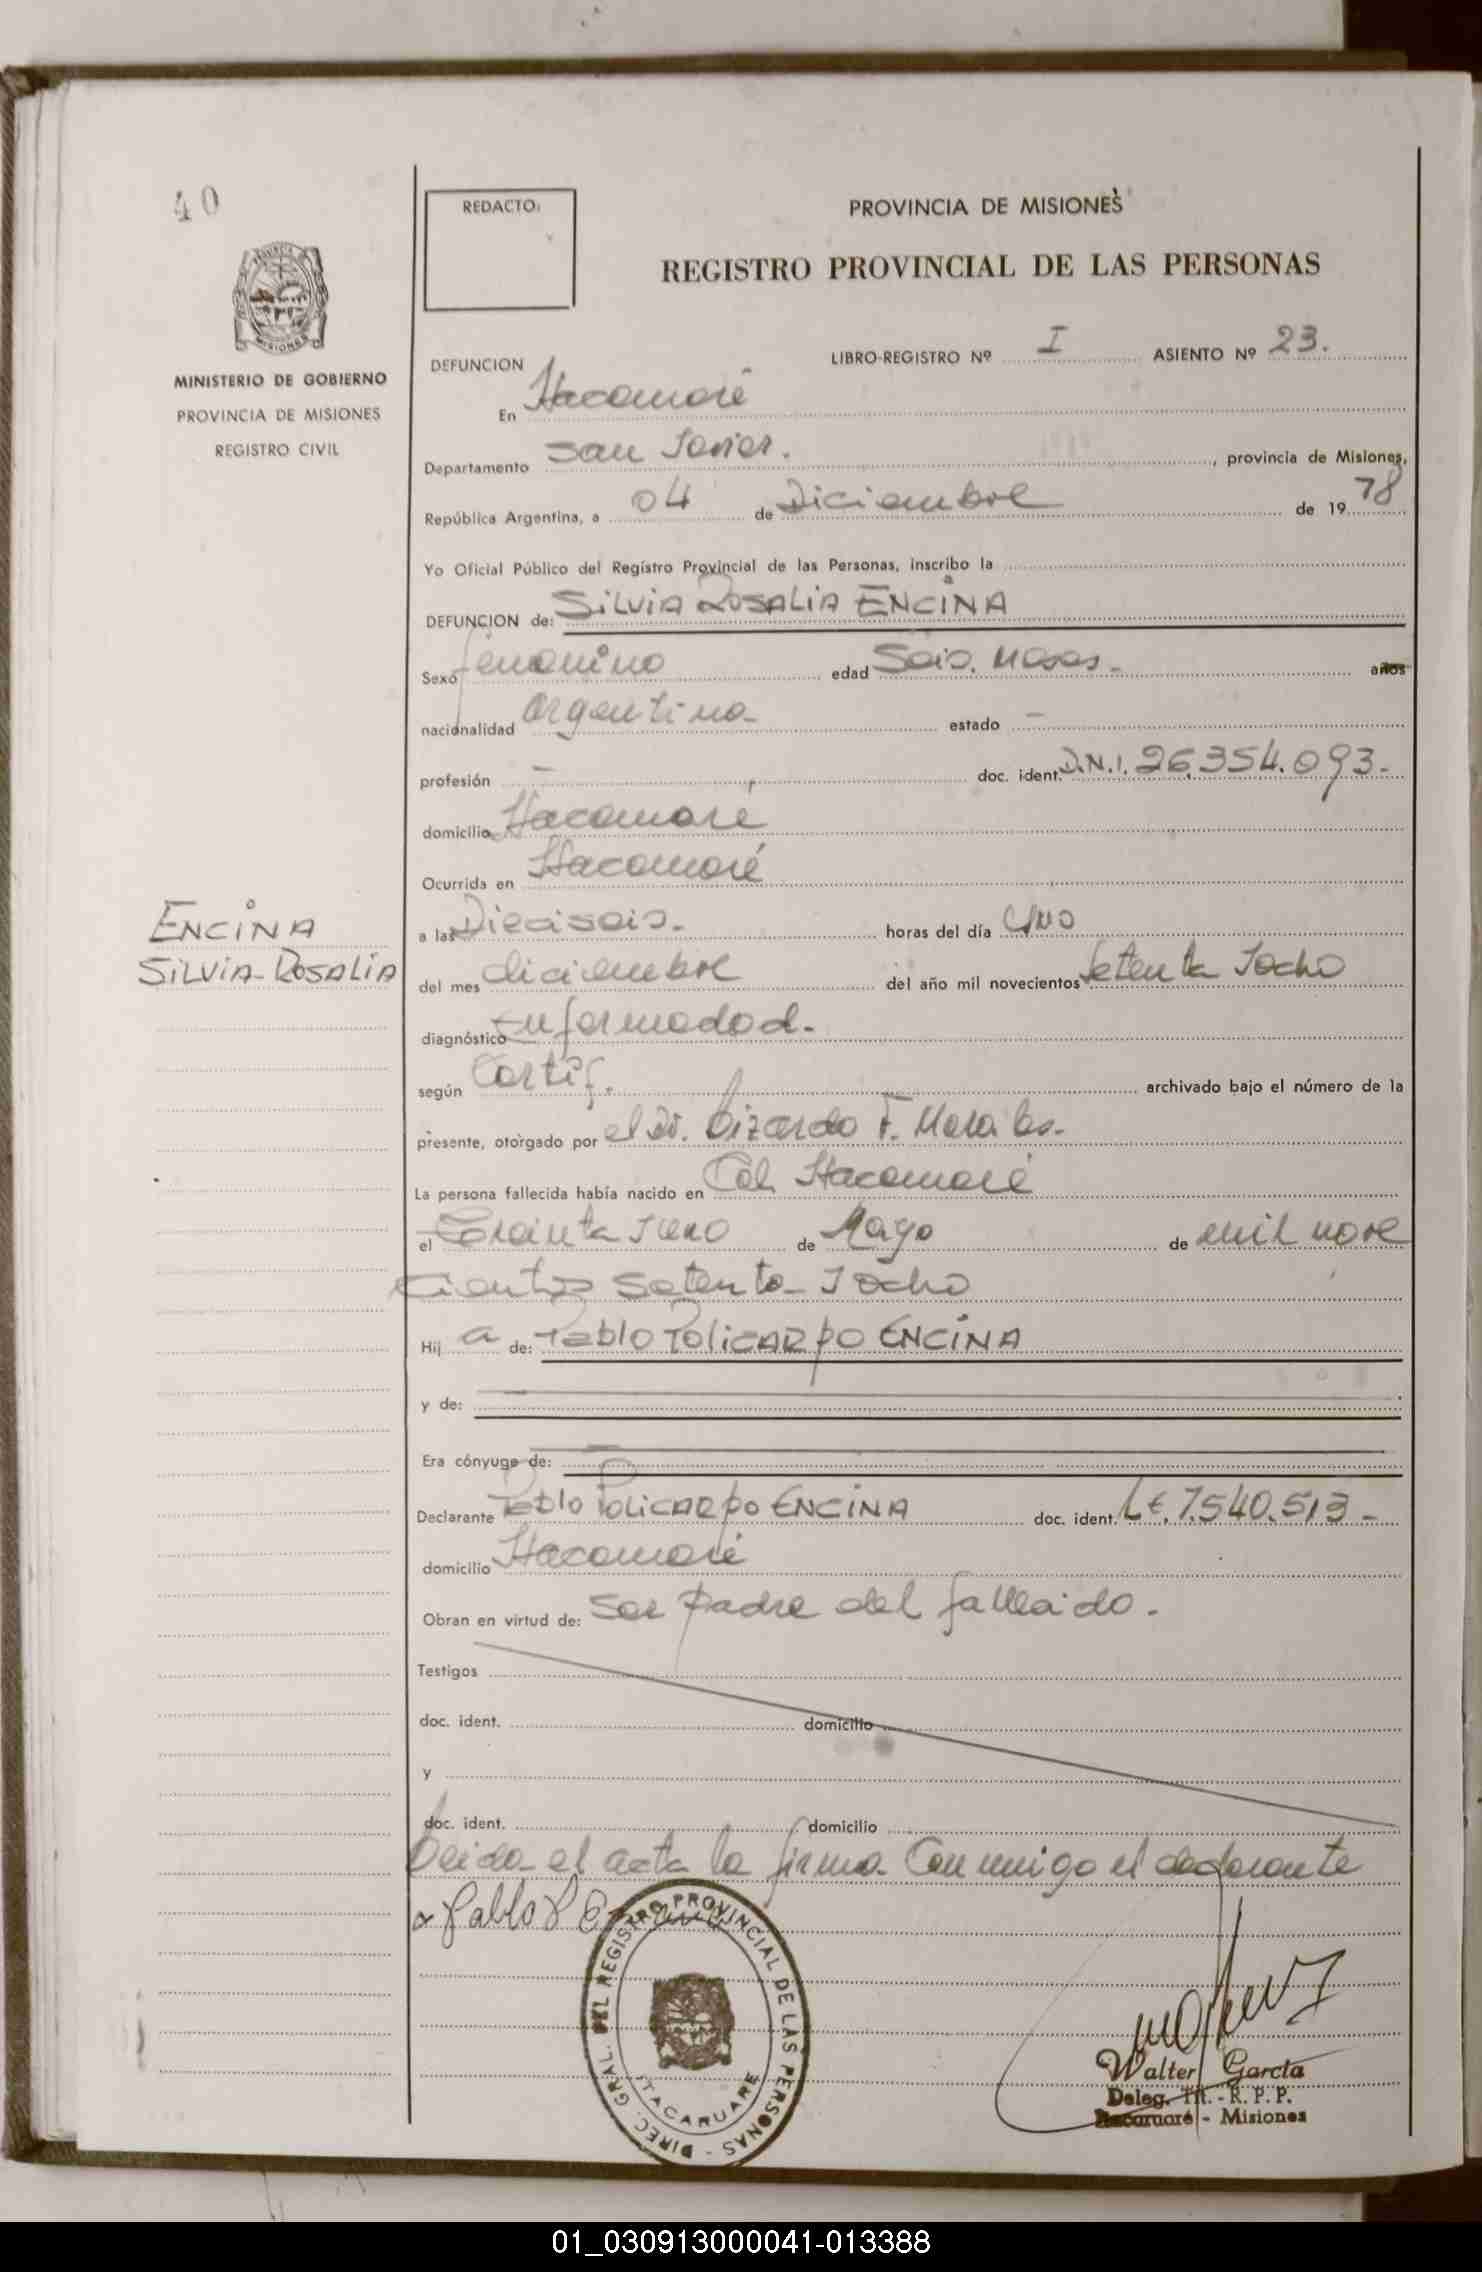 40
REDACTO:
PROVINCIA DE MISIONES
REGISTRO PROVINCIAL DE LAS PERSONAS
MINISTERIO DE GOBIERNO
PROVINCIA DE MISIONES
REGISTRO CIVIL
DEFUNCION
LIBRO-REGISTRO Nº I ASIENTO Nº 23.
En Itacaruaré
Departamento San Javier. , provincia de Misiones,
República Argentina, a 04 de Diciembre de 19 78
Yo Oficial Público del Registro Provincial de las Personas, inscribo la
DEFUNCION de: SILVIA ROSALIA ENCINA
Sexo femenino edad Seis. meses. años
nacionalidad argentina estado —
profesión — doc. ident. D.N.I. 26.354.093.
domicilio Itacaruaré
Ocurrida en Itacaruaré
ENCINA
SILVIA ROSALIA
a las Dieciseis. horas del día Uno
del mes diciembre del año mil novecientos Setenta y ocho
diagnóstico Enfermedad.
según Certif. archivado bajo el número de la
presente, otorgado por el Dr. F. Morales.
La persona fallecida había nacido en Col. Itacaruaré
el Treinta y uno de Mayo de mil nove
cientos Setenta y ocho
Hij a de: Pablo POLICARPO ENCINA
y de:
Era cónyuge de:
Declarante Pablo POLICARPO ENCINA doc. ident. L.E. 7.540.513
domicilio Itacaruaré
Obran en virtud de: Ser padre del fallecido.
Testigos
doc. ident. domicilio
y
doc. ident. domicilio
Leida el acta la firma conmigo el declarante
Pablo P Encina
DIREC. GRAL. DEL REGISTRO PROVINCIAL DE LAS PERSONAS -
ITACARUARE
Walter García
Deleg. Tit. - R. P. P.
Itacaruaré - Misiones
01_030913000041-013388